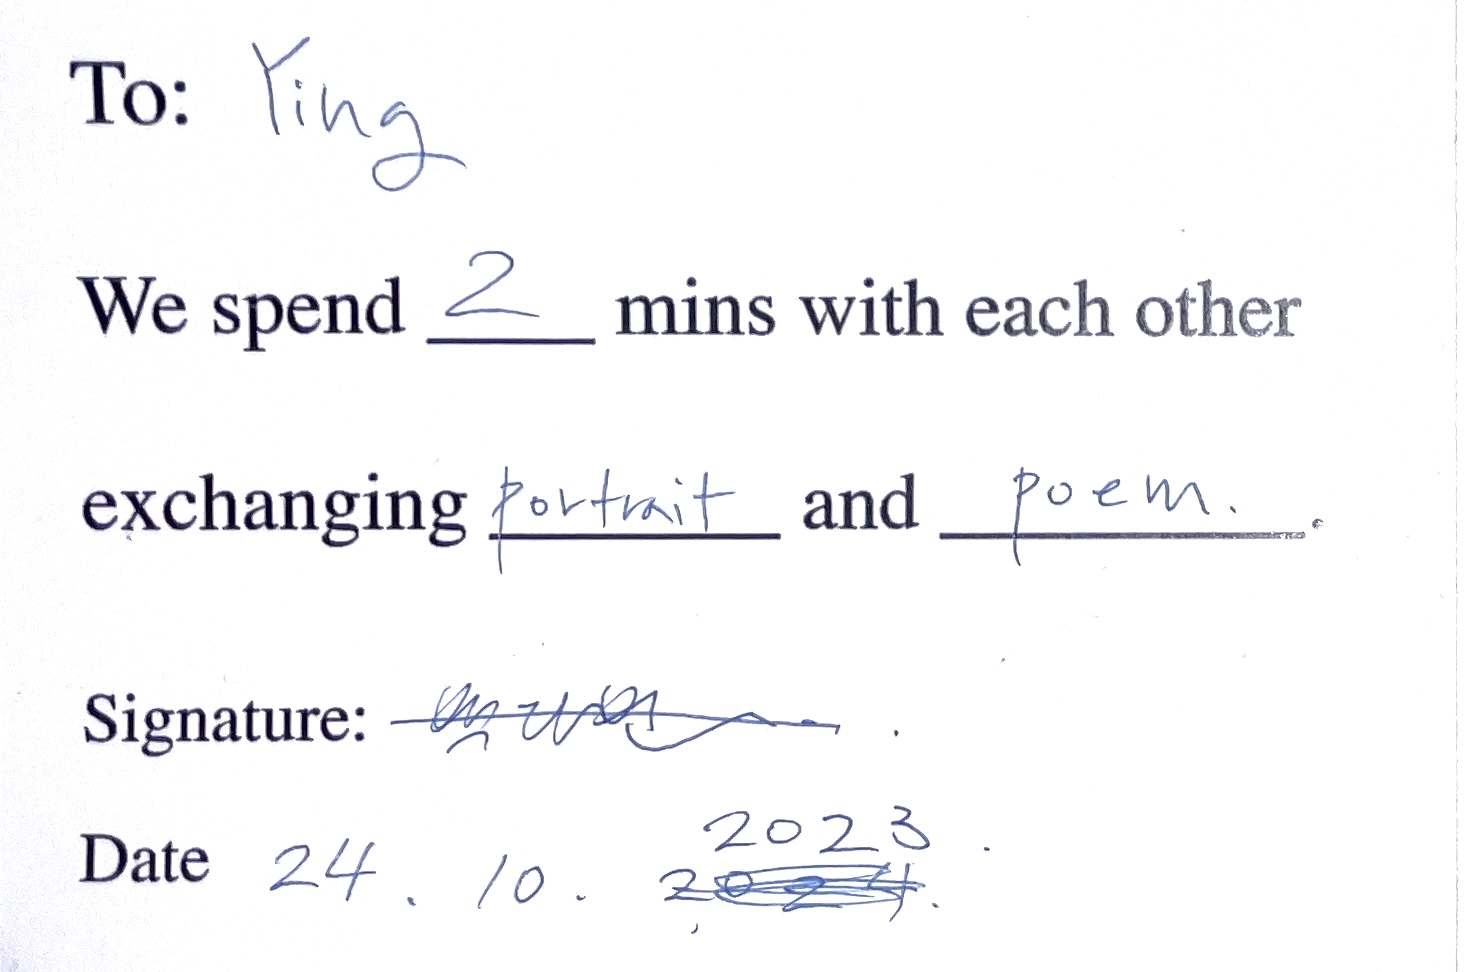 To: Ying
We spend 2 mins with each other
exchanging portrait and poem. .
Signature:
2023
Date 24. 10. 2024.